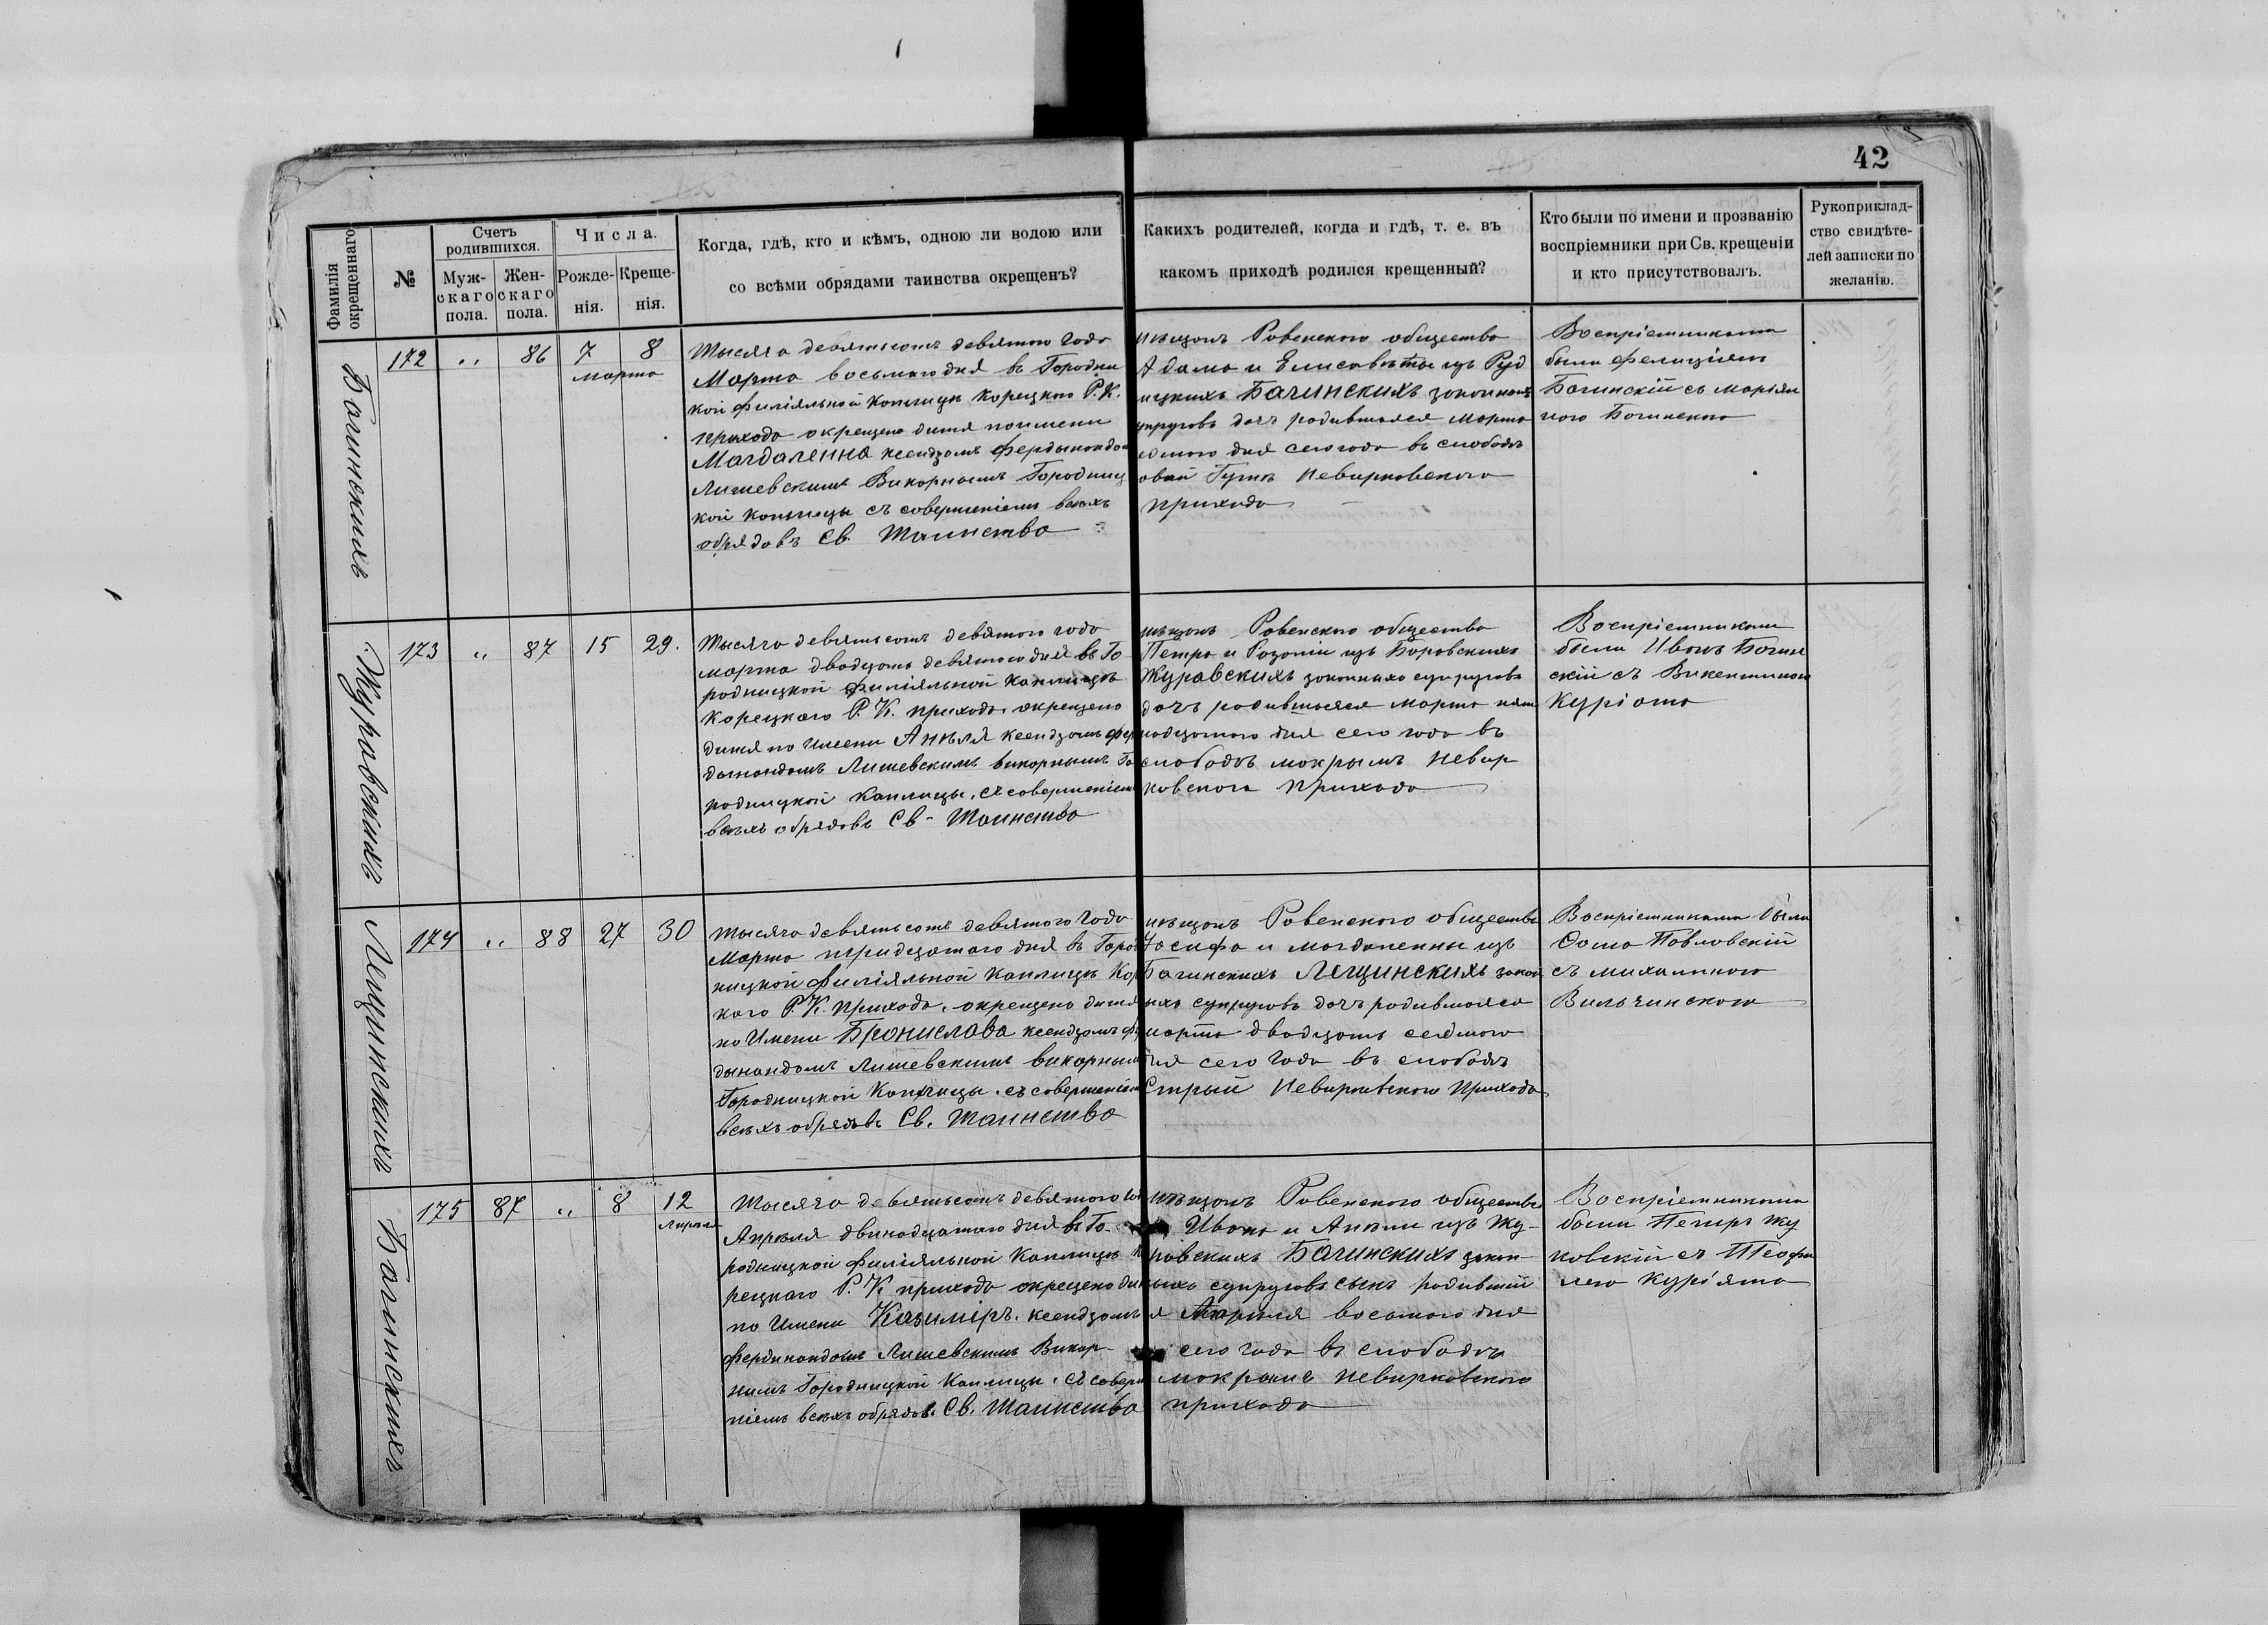 42
Фамилія окрещеннаго
№
Счетъ родившихся.
Мужскаго пола.
Женскаго пола.
Числа.
Рожденія.
Крещенія.
Когда, гдѣ, кто и кѣмъ, одною ли водою или
со всѣми обрядами таинства окрещенъ?
Какихъ родителей, когда и гдѣ, т. е. въ
какомъ приходѣ родился крещенный?
Кто были по имени и прозванію
воспріемники при Св. крещеніи
и кто присутствовалъ.
Рукоприклад-
ство свидѣте-
лей записки по
желанію.
Бачинскихъ
172 " 86 7 8
Марта
Тысяча девятьсотъ девятого года
Марта восьмого дня въ Городни
кой филіяльной каплицѣ Корецкого Р. К.
прихода окрещено дитя по имени
Магдаленна ксендзомъ Фердынандо
Лишевскимъ Викорнымъ Городниц
кой каплицы съ совершеніемъ всѣхъ
обрядовъ Св. Таинства
мѣщанъ Ровенского общества
Адама и Елисаветы изъ Руд
ницкихъ Бачинскихъ законныхъ
супруговъ дочъ родившаяся Марта
едмого дня сего года въ слободѣ
овой Гутѣ Невирковского
прихода
Воспріемниками
были Фелиціян
Бачинскій съ Маріян
ного Бачинского
Журавскихъ
173 " 87 15 29.
Тысяча девятьсотъ девятого года
марта двадцать девятого дня въ Го
родницкой филіяльной каплицѣ
Корецкого Р. К. прихода окрещено
дитя по имени Анѣля ксендзомъ Фер
дынандомъ Лишевскимъ викорнымъ Го
родницкой каплицы, съ совершеніемъ
всѣхъ обрядовъ Св. Таинства
мѣщанъ Ровенского общества
Петра и Розаліи изъ Боровскихъ
Журавскихъ законныхъ супруговъ
дочъ родившаяся марта пят
надцатого дня сего года въ
слободѣ мокрымъ Невир
ковского прихода
Воспріемниками
были Иванъ Бачин
скій съ Викентиного
Куріята
Лещинскихъ
174 " 88 27 30
Тысяча девятьсотъ девятого года
Марта тридцатаго дня въ Город
ницкой филіяльной каплицѣ Кор
кого Р. К. прихода, окрещено дитя
по имени Бронислава ксендзомъ Фе
дынандомъ Лишевскимъ викорным
Городницкой каплицы, съ совершеніем
всѣхъ обрядовъ Св. Таинства
мѣщанъ Ровенского общества
Іосифа и Магдаленны изъ
Бачинскихъ Лещинскихъ закон
ыхъ супруговъ дочъ родившаяся
марта двадцать седмого
дня сего года въ слободѣ
Старый Невирковского прихода
Воспріемниками были
Ѳома Павловскій
съ михалиного
Вильчинского
Бачинскихъ
175 87 " 8 12
Апрѣля
Тысяча девятьсотъ девятого го
Апрѣля двинадцатаго дня въ Го-
родницкой филіяльной каплицѣ К
рецкаго Р. К прихода окрещено дит
по имени Казиміръ. ксендзомъ
Фердинандомъ Лишевскимъ Викор-
нымъ Городницкой каплицы, съ соверш
ніемъ всѣхъ обрядов. Св. Таинства
мѣщанъ Ровенского общества
Ивана и Анны изъ Жу-
ровскихъ Бачинскихъ закон
ныхъ супруговъ сынъ родивший
я Апрѣля восьмого дня
сего года въ слободѣ
мокрымъ Невирковского
прихода
Воспріемниками
были Петръ Жу
ковскій съ Теофи
лего Куріята